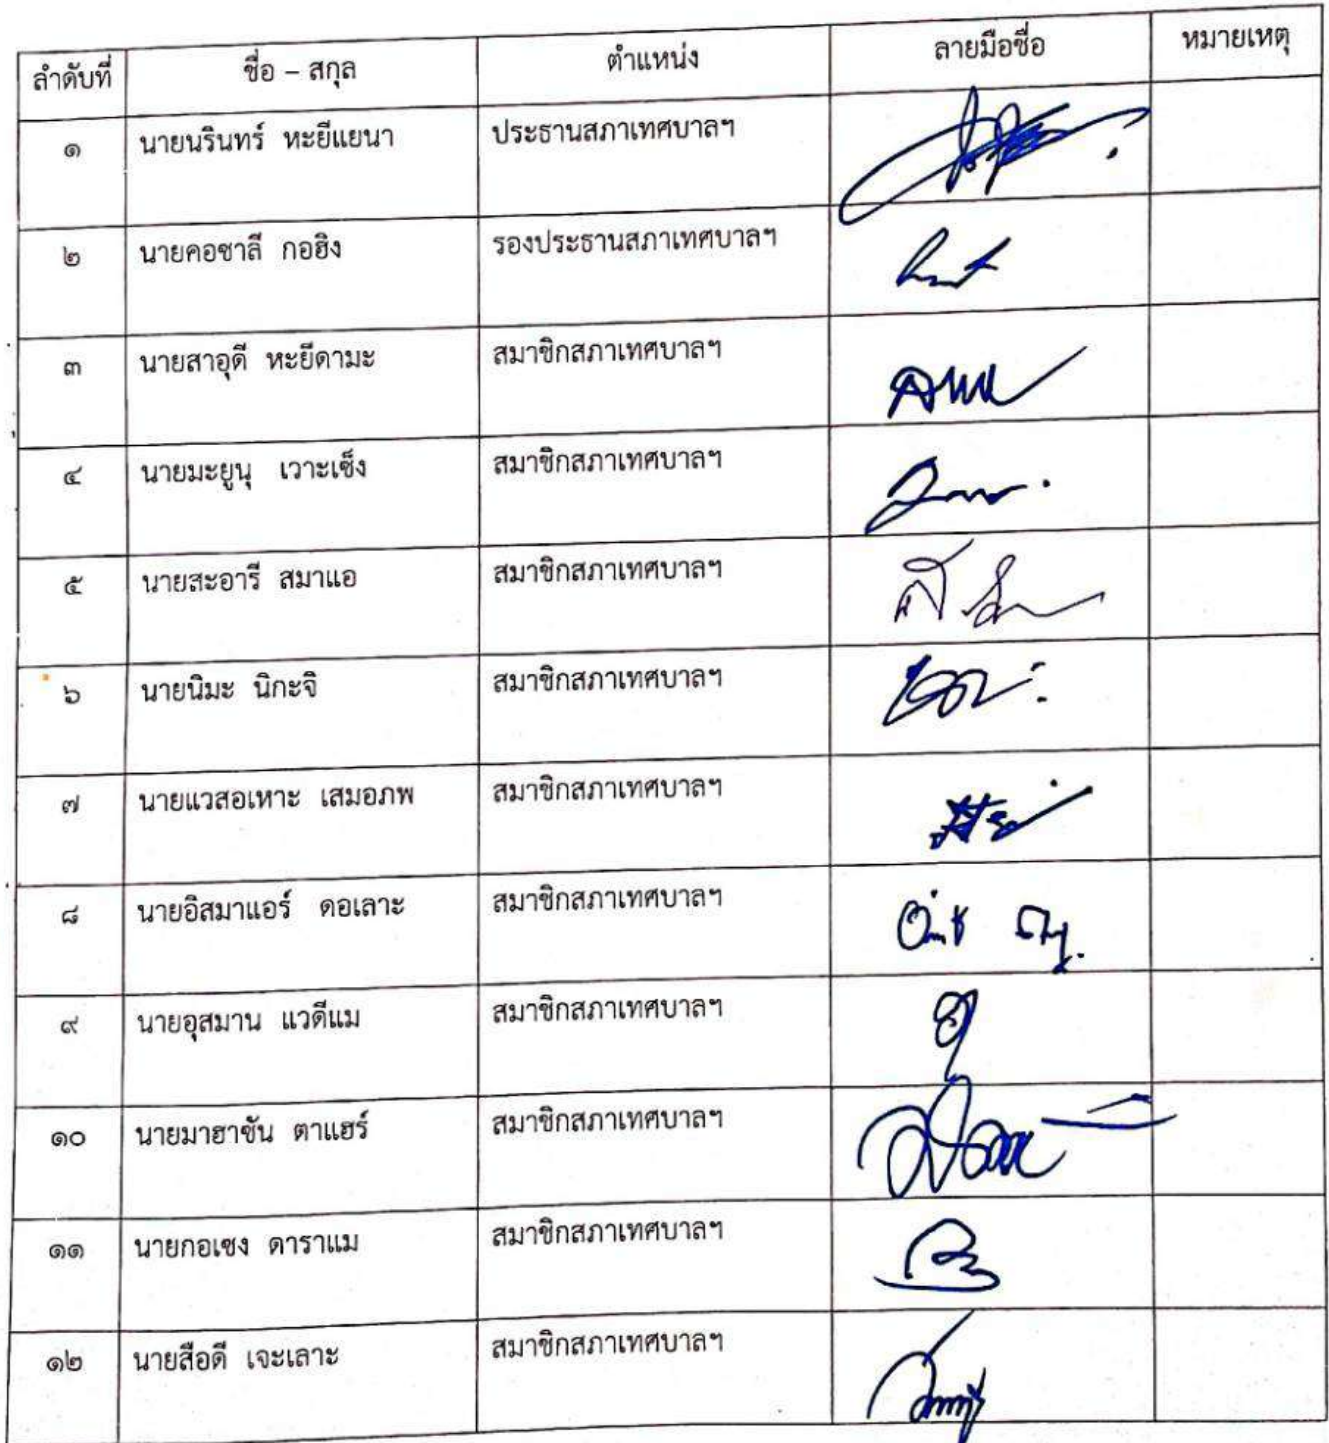 ลำดับที่ ชื่อ – สกุล ตำแหน่ง ลายมือชื่อ หมายเหตุ
๑ นายนรินทร์ หะยีแยนา ประธานสภาเทศบาลฯ
๒ นายคอซาลี กอฮิง รองประธานสภาเทศบาลฯ
๓ นายสาอุดี หะยีดามะ สมาชิกสภาเทศบาลฯ
๔ นายมะยูนุ เวาะเซ็ง สมาชิกสภาเทศบาลฯ
๕ นายสะอารี สมาแอ สมาชิกสภาเทศบาลฯ
๖ นายนิมะ นิกะจิ สมาชิกสภาเทศบาลฯ
๗ นายแวสอเหาะ เสมอภพ สมาชิกสภาเทศบาลฯ
๘ นายอิสมาแอร์ ดอเลาะ สมาชิกสภาเทศบาลฯ
๙ นายอุสมาน แวดีแม สมาชิกสภาเทศบาลฯ
๑๐ นายมาฮาซัน ตาแฮร์ สมาชิกสภาเทศบาลฯ
๑๑ นายกอเซง ดาราแม สมาชิกสภาเทศบาลฯ
๑๒ นายสือดี เจะเลาะ สมาชิกสภาเทศบาลฯ